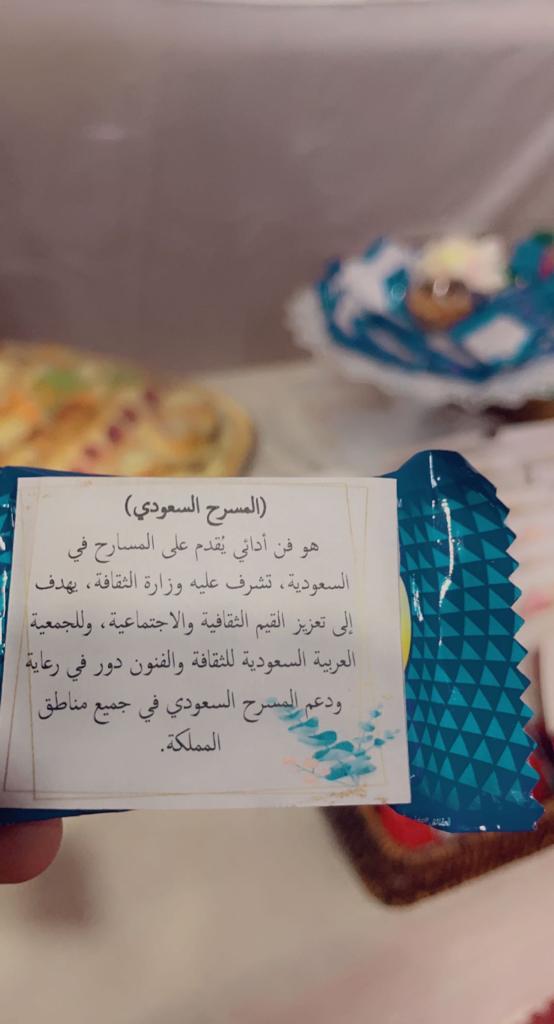 (المسرح السعودي)
هو فن أدائي يُقدم على المسارح في
السعودية، تشرف عليه وزارة الثقافة، يهدف
إلى تعزيز القيم الثقافية والاجتماعية، وللجمعية
العربية السعودية للثقافة والفنون دور في رعاية
ودعم المسرح السعودي في جميع مناطق
المملكة.